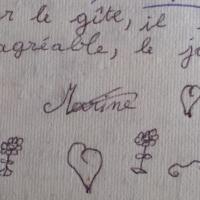 r le gîte, il
agréable, le j
Martine